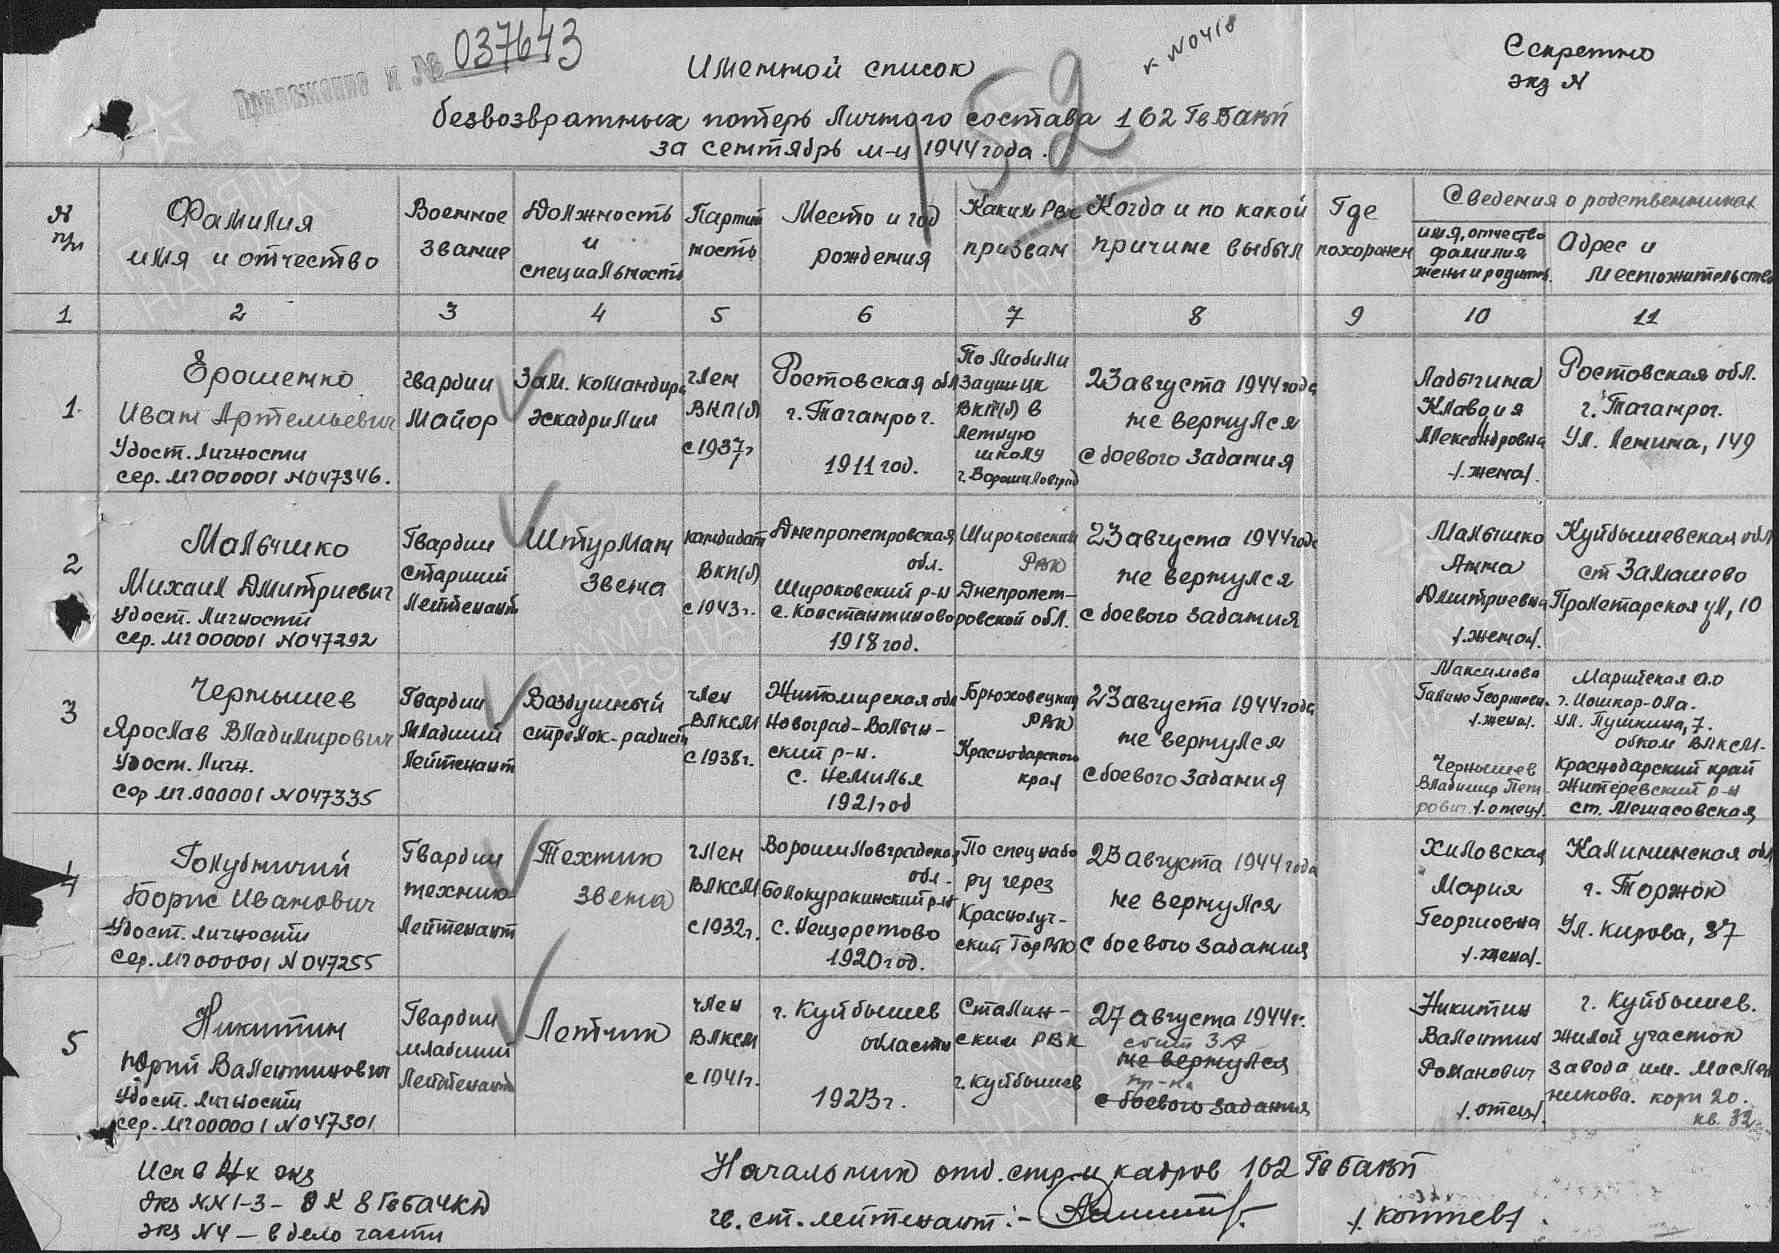 Приложение к № 037643
к №0418
52
Секретно
экз №
Именной список
безвозвратных потерь личного состава 162 ГвБакп
за сентябрь м-ц 1944 года.
№ п/п
Фамилия
имя и отчество
Военное
звание
Должность
и
специальность
Партий
ность
Место и год
рождения
Каким РВК
призван
Когда и по какой
причине выбыл
Где
похоронен
Сведения о родственниках
имя, отчество
фамилия
жены и родит.
Адрес и
местожительство
1 2 3 4 5 6 7 8 9 10 11
1.
Ерошенко
Иван Артемьевич
Удост. личности
сер. МГ 000001 №047346.
гвардии
майор
Зам. командира
эскадрилии
член
ВКП(б)
с 1937г
Ростовская обл
г. Таганрог.
1911 год.
По мобили
зации цк
ВКП(б) в
летную
школу
г. Ворошиловград
23 августа 1944 года
не вернулся
с боевого задания
Ладычина
Клавдия
Александровна
/.жена/.
Ростовская обл.
г. Таганрог.
Ул. Ленина, 149
2
Малышко
Михаил Дмитриевич
Удост. личности
сер. МГ 000001 №047292
Гвардии
старший
лейтенант
Штурман
звена
кандидат
ВКП(б)
с 1943г.
Днепропетровская
обл.
Широковский р-н
с. Константиново
1918 год.
Широковским
РВК
Днепропет-
ровской обл.
23 августа 1944 года
не вернулся
с боевого задания
Малышко
Анна
Дмитриевна
/.жена/.
Куйбышевская обл
ст
Пролетарская ул, 10
3
Чернышев
Ярослав Владимирович
Удост. личн.
сер МГ.000001 №047335
Гвардии
младший
лейтенант
Воздушный
стрелок-радист
член
ВЛКСМ
с 1938г.
Житомирская обл
Новоград-Волын-
ский р-н.
с. Немилья
1921 год
Брюховецким
РВК
Краснодарского
края
23 августа 1944 года
не вернулся
с боевого задания
Максимова
Галина Георгиевн.
/.жена/.
Чернышев
Владимир Пет
рович /.отец/.
Марийская АО
г. Йошкар-Ола.
ул. Пушкина, 7.
обком ВЛКСМ.
Краснодарский край
р-н
ст.
4
Голубничий
Борис Иванович
Удост. личности
сер. МГ 000001 №047255
Гвардии
техник
лейтенант
Техник
звена
член
ВЛКСМ
с 1932г.
Ворошиловградская
обл.
Белокуракинский р-н
с. Нещеретово
1920 год.
По спецнабо
ру через
Краснолуч-
ский ГорВК
23 августа 1944 года
не вернулся
с боевого задания
Хиловская
Мария
Георгиевна
/.жена/.
Калининская обл
г. Торжок
Ул. Кирова, 87
5
Никитин
Юрий Валентинович
Удост. личности
сер. МГ 000001 №047301
Гвардии
младший
лейтенант
Летчик
член
ВЛКСМ
с 1941г.
г. Куйбышев
области
1923г.
Сталин-
ским РВК
г. Куйбышев
27 августа 1944г.
сбит ЗА
не вернулся
пр-ка
с боевого задания
Никитин
Валентин
Романович
/.отец/.
г. Куйбышев.
жилой участок
завода им. Маслен
никова. корп 20.
кв. 32
Исп в 4х экз
экз №№ 1-3 - ОК 8 ГвБАЧКД
экз №4 - в дело части
Начальник отд. стр. и кадров 162 ГвБакп
гв. ст. лейтенант:-
/.Коптев/.